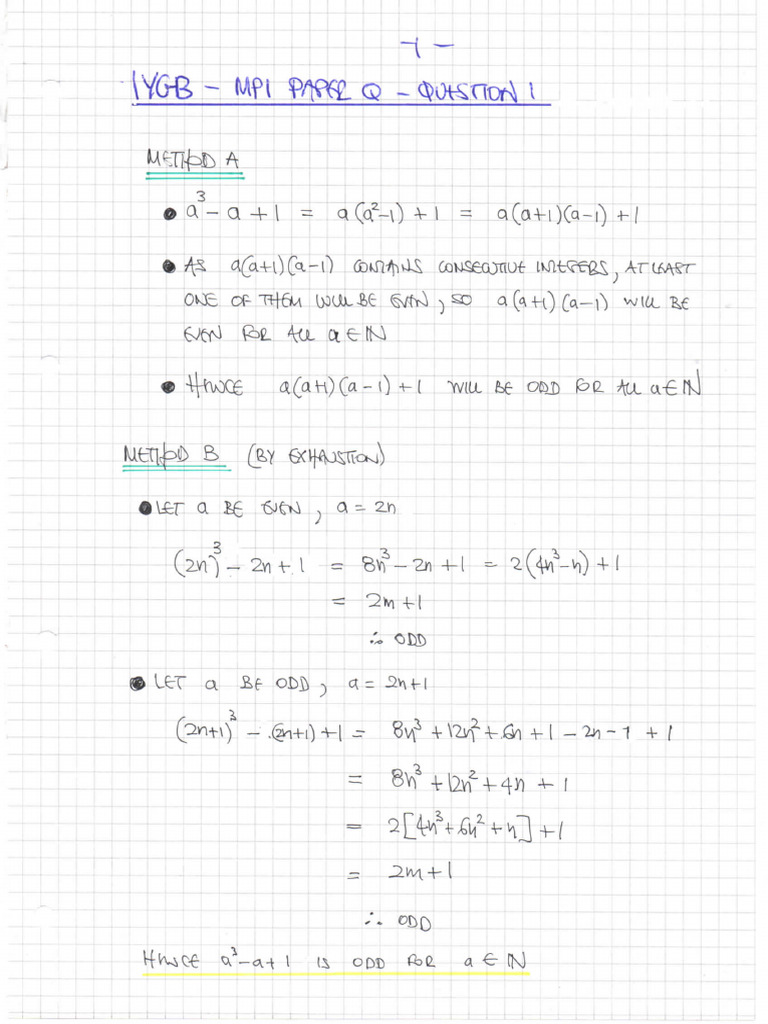 -1-
IYGB - MP1 PAPER Q - QUESTION 1
METHOD A
● a³ - a + 1 = a(a²-1) + 1 = a(a+1)(a-1) + 1
● AS a(a+1)(a-1) CONTAINS CONSECUTIVE INTEGERS, AT LEAST
ONE OF THEM WILL BE EVEN, SO a(a+1)(a-1) WILL BE
EVEN FOR ALL a∈ℕ
● HENCE a(a+1)(a-1)+1 WILL BE ODD FOR ALL a∈ℕ
METHOD B (BY EXHAUSTION)
● LET a BE EVEN, a = 2n
(2n)³ - 2n + 1 = 8n³ - 2n + 1 = 2(4n³-n) + 1
= 2m + 1
∴ ODD
● LET a BE ODD, a = 2n+1
(2n+1)³ - (2n+1) + 1 = 8n³ + 12n² + 6n + 1 - 2n - 1 + 1
= 8n³ + 12n² + 4n + 1
= 2[4n³ + 6n² + n] + 1
= 2m + 1
∴ ODD
HENCE a³-a+1 IS ODD FOR a∈ℕ